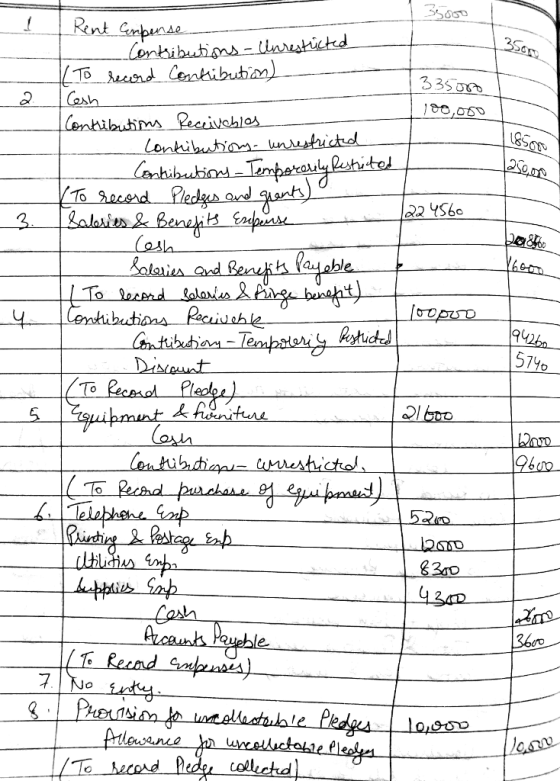 1 Rent Expense 35000
Contributions - Unrestricted 35000
(To record Contribution)
2 Cash 335000
Contributions Receivables 100,000
Contributions - unrestricted 185000
Contributions - Temporarily Restricted 250,000
(To record Pledges and grants)
3. Salaries & Benefits Expense 224560
Cash
Salaries and Benefits Payable 16000
(To record Salaries & fringe benefit)
4. Contributions Receivable 100,000
Contribution - Temporarily Restricted 94260
Discount 5740
(To Record Pledge)
5 Equipment & furniture 21600
Cash 12000
Contributions - unrestricted. 9600
(To Record purchase of equipment)
6. Telephone Exp 5200
Printing & Postage Exp 12000
Utilities Exp. 8300
Supplies Exp 4300
Cash
Accounts Payable 3600
(To Record Expenses)
7. No entry.
8. Provision for uncollectable Pledges 10,000
Allowance for uncollectable Pledges 10,000
(To record Pledge collected)